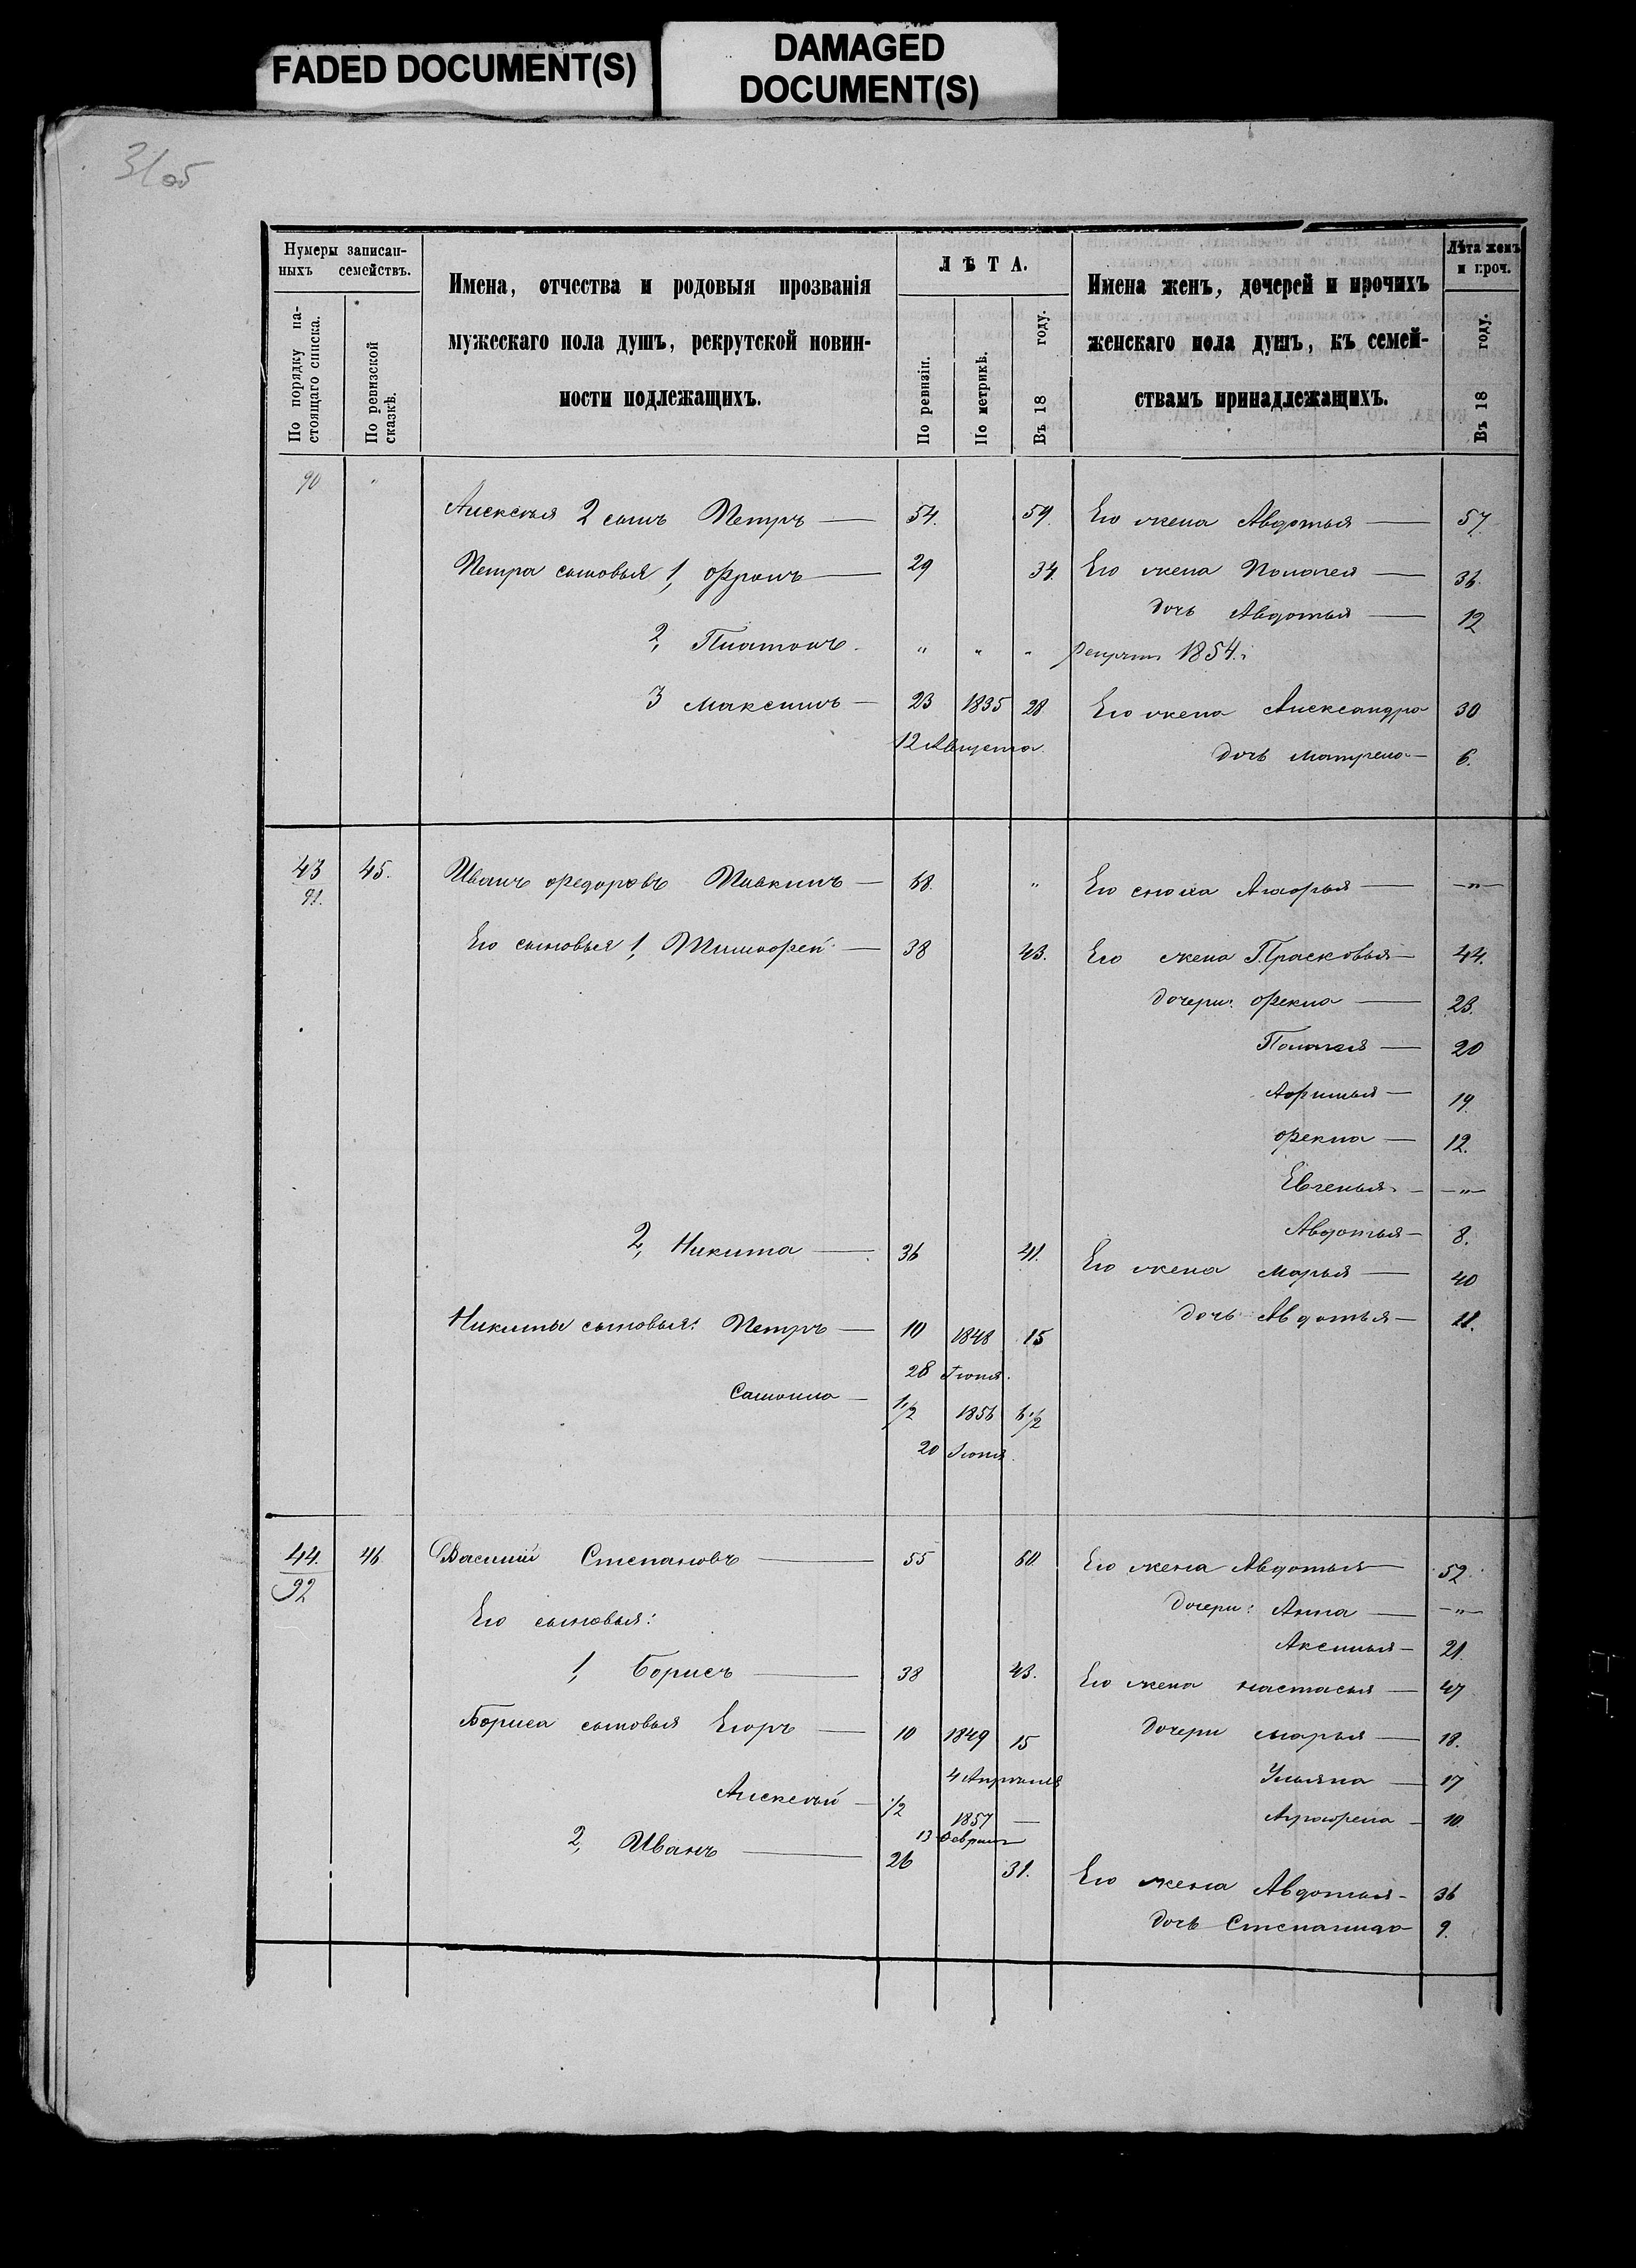 FADED DOCUMENT(S)
DAMAGED
DOCUMENT(S)
31 об
Нумеры записан-
ныхъ семействъ.
По порядку на-
стоящаго списка.
По ревизской
сказкѣ.
Имена, отчества и родовыя прозванія
мужескаго пола душъ, рекрутской повин-
ности подлежащихъ.
ЛѢТА.
По ревизіи.
По метрикѣ.
Въ 18 году.
Имена женъ, дочерей и прочихъ
женскаго пола душъ, къ семей-
ствамъ принадлежащихъ.
Лѣта женъ
и проч.
Въ 18 году.
90 "
Алексѣя 2 сынъ Петръ — 54. 59. Его жена Авдотья — 57.
Петра сыновья 1, Фролъ — 29 34. Его жена Палагея — 36.
дочь Авдотья — 12
2, Платонъ. " " " рекрутъ 1854.
3 Максимъ — 23 1835 28 Его жена Александра 30
12 Августа. дочь Матрена — 6.
43 45. Иванъ Федоровъ Пивкинъ — 68. " Его сноха Агафья — — " —
91.
Его сыновья 1, Тимофей — 38 43. Его жена Прасковья — 44.
дочери: Фекла — 23.
Палагея — 20
Афимья — 19.
Фекла — 12.
Евгенья. — — " —
Авдотья — 8.
2, Никита — 36 41. Его жена Марья — 40
Никиты сыновья: Петръ — 10 1848 15 дочь Авдотья — 11.
28 Іюня.
Самойла — 1 1/2 1856 6 1/2
20 Іюня.
44. 46. Василий Степановъ — 55 60. Его жена Авдотья — 52.
92
Его сыновья: дочери: Анна — — " —
Аксинья — 21.
1, Борисъ — 38 43. Его жена Настасья — 47
Бориса сыновья Егоръ — 10 1849 15 дочери Марья — 18.
4 Апрѣля Ульяна — 17
Алексѣй — 1/2 1857 — Аграфена — 10.
13 Февраля
2, Иванъ — 26 31. Его жена Авдотья — 36
дочь Степанида 9.